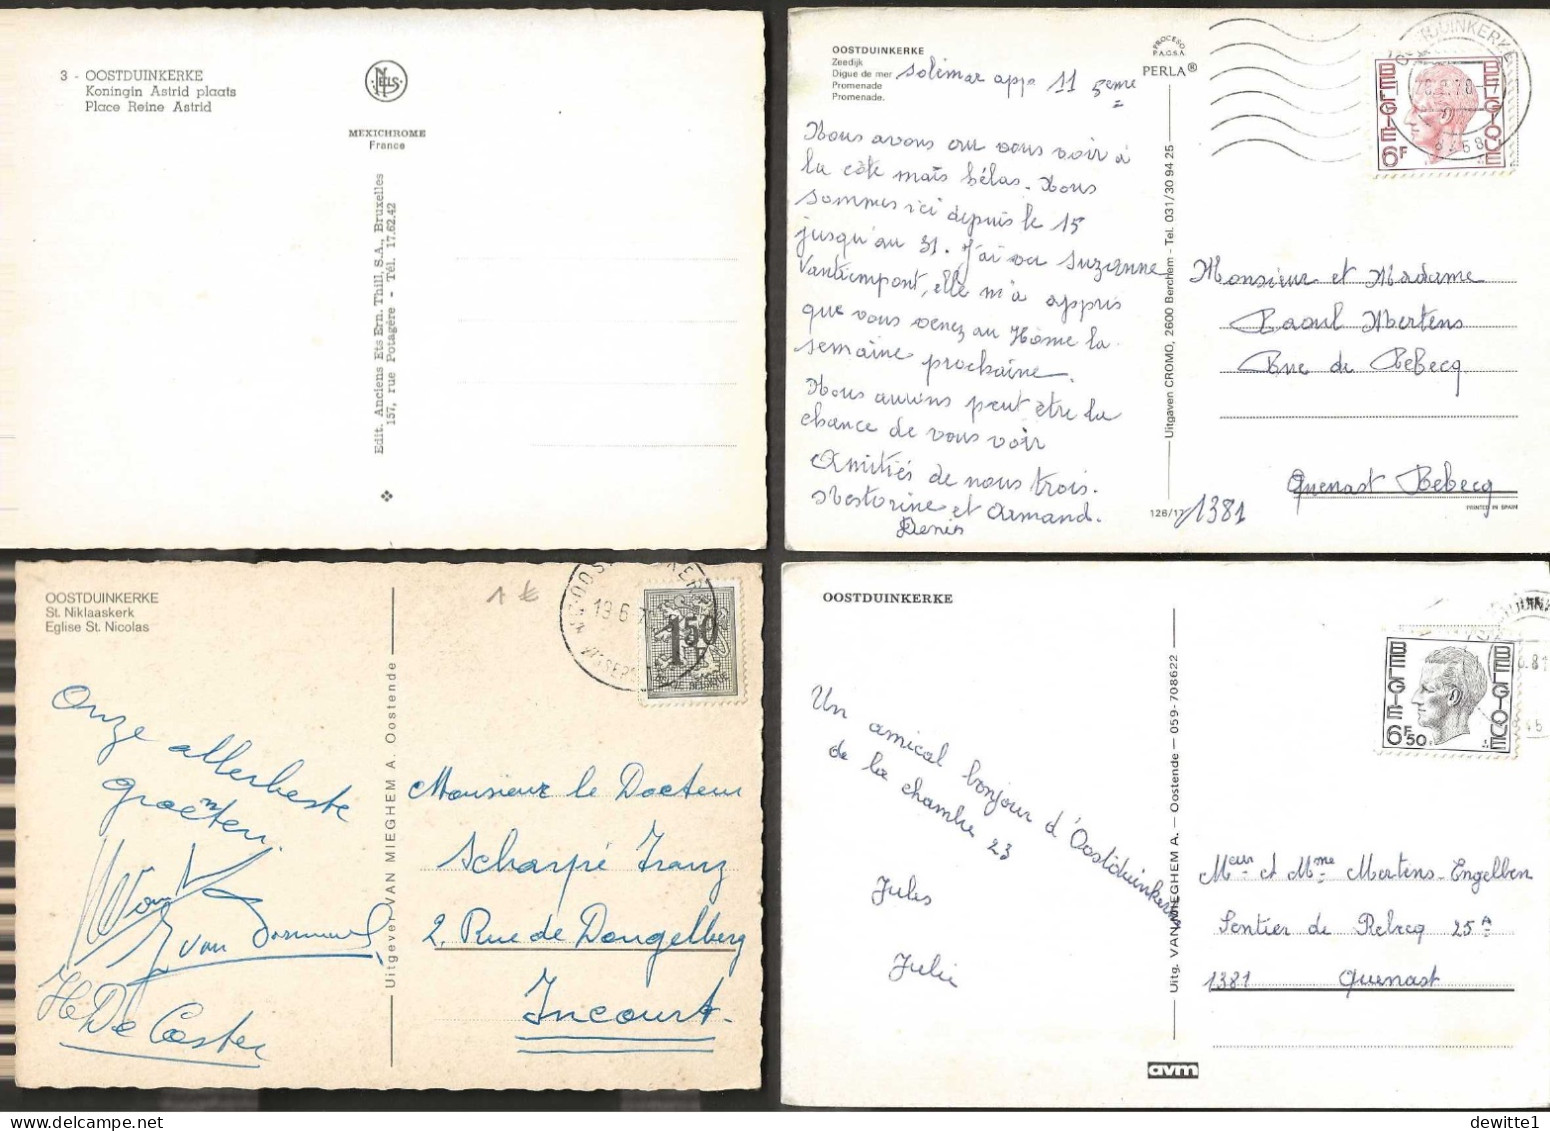 3 - OOSTDUINKERKE
Koningin Astrid plaats
Place Reine Astrid
NELS
MEXICHROME
France
Edit. Anciens Ets Ern. Thill, S.A., Bruxelles
157, rue Potagère - Tél. 17.62.42
OOSTDUINKERKE
Zeedijk
Digue de mer
Promenade
Promenade.
Solimar appa 11 5eme
PROCESO
P.A.G.S.A.
PERLA®
Nous avons cru vous voir à
la côte mais hélas. Nous
sommes ici depuis le 15
jusqu'au 31. J'ai vu Suzanne
Vantiempont, elle m'a appris
que vous venez au Home la
semaine prochaine.
Nous aurons peut être la
chance de vous voir
Amitiés de nous trois.
Nestorine et Armand.
Denis
Uitgaven CROMO, 2600 Berchem - Tel. 031/30 94 25
126/17
BELGIE BELGIQUE
6F
Monsieur et Madame
Raoul Mertens
Rue de Rebecq
Quenast Rebecq
1381
PRINTED IN SPAIN
OOSTDUINKERKE
St. Niklaaskerk
Eglise St. Nicolas
1 €
19.6
1,50
F
Onze allerbeste
groeten.
van
H De Coster
Uitgever VAN MIEGHEM A. Oostende
Monsieur le Docteur
Scharpé Franz
2, Rue de Dongelberg
Incourt.
OOSTDUINKERKE
BELGIE BELGIQUE
6F50
Un amical bonjour d'Oostduinkerke
de la chambre 23
Jules
Julie
Uitg. VAN MIEGHEM A. - Oostende - 059-708622
Meur et Mme Mertens-Engelben
Sentier de Rebecq 25A
1381 Quenast
avm
dewitte1